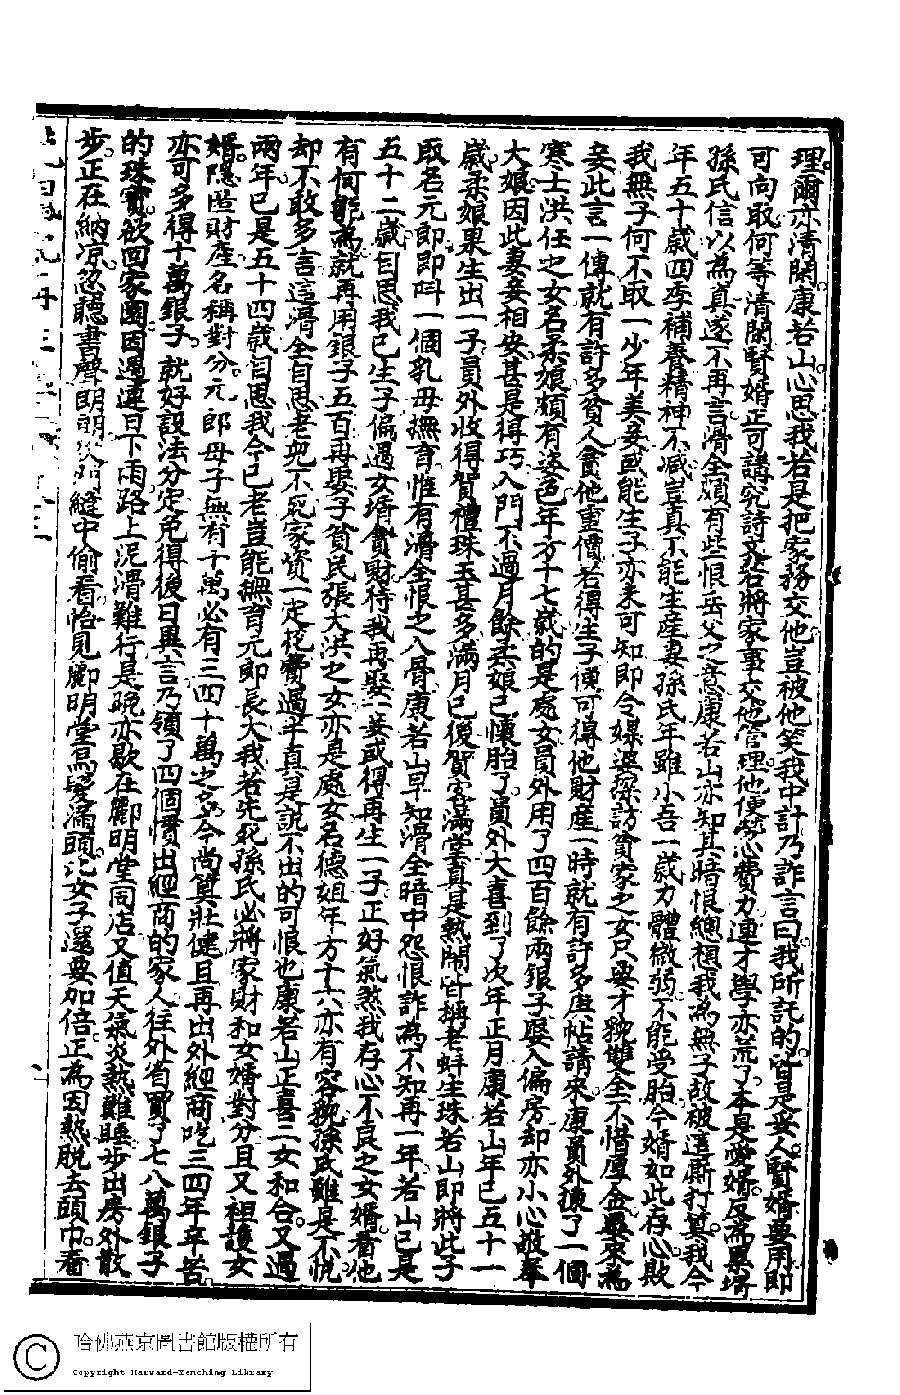 理爾亦清閑康若山心思我若是把家務交他豈被他笑我中計乃詐言曰我所託的皆是妥人賢婿要用即
可向取何等清閑賢婿正可講究詩文若將家事交他管理他便勞心費力連才學亦荒了本是愛婿反為累壻
孫氏信以為真遂不再言滑全頗有些恨岳父之意康若山亦知其暗恨總想我為無子故被這廝打算我今
年五十歲四季補養精神不減豈真不能生產妻孫氏年雖小吾一歲力體微弱不能受胎今婿如此存心欺
我無子何不取一少年美妾或能生子亦未可知即令媒婆探訪貧家之女只要才貌雙全不惜厚金娶來為
妾此言一傳就有許多貧人貪他重價若得生子便可得他財產一時就有許多庚帖請來康員外揀了一個
寒士洪任之女名柔娘頗有姿色年方十七歲的是處女員外用了四百餘兩銀子娶入偏房却亦小心敬奉
大娘因此妻妾相安甚是得巧入門不過月餘柔娘已懷胎了員外大喜到了次年正月康若山年已五十一
歲柔娘果生出一子員外收得賀禮珠玉甚多滿月已後賀客滿堂真是熱鬧皆稱老蚌生珠若山即將此子
取名元郎即叫一個乳母撫育惟有滑全恨之入骨康若山早知滑全暗中怨恨詐為不知再一年若山已是
五十二歲自思我已生子偏遇女婿貪財待我再娶一妾或得再生一子正好氣煞我存心不良之女婿看他
有何能為就再用銀子五百再娶子貧民張大洪之女亦是處女名德姐年方十六亦有容貌孫氏雖是不悅
却不敢多言這滑全自思老兜不死家資一定花費過半真是說不出的可恨也康若山正喜二女和合又過
兩年已是五十四歲自思我今已老豈能撫育元郎長大我若先死孫氏必將家財和女婿對分且又袒護女
婿隱匿財產名稱對分元郎母子無有十萬必有三四十萬之名今尚算壯健且再出外經商吃三四年辛苦
亦可多得十萬銀子就好設法分定免得後日異言乃領了四個慣出經商的家人往外省買了七八萬銀子
的珠寶欲回家園因遇連日下雨路上泥滑難行是晚亦歇在酈明堂同店又值天氣炎熱難睡步出房外散
步正在納涼忽聽書聲朗朗從門縫中偷看恰見酈明堂烏髮滿頭比女子還要加倍正為因熱脫去頭巾看
哈佛燕京圖書館版權所有
Copyright Harvard-Yenching Library